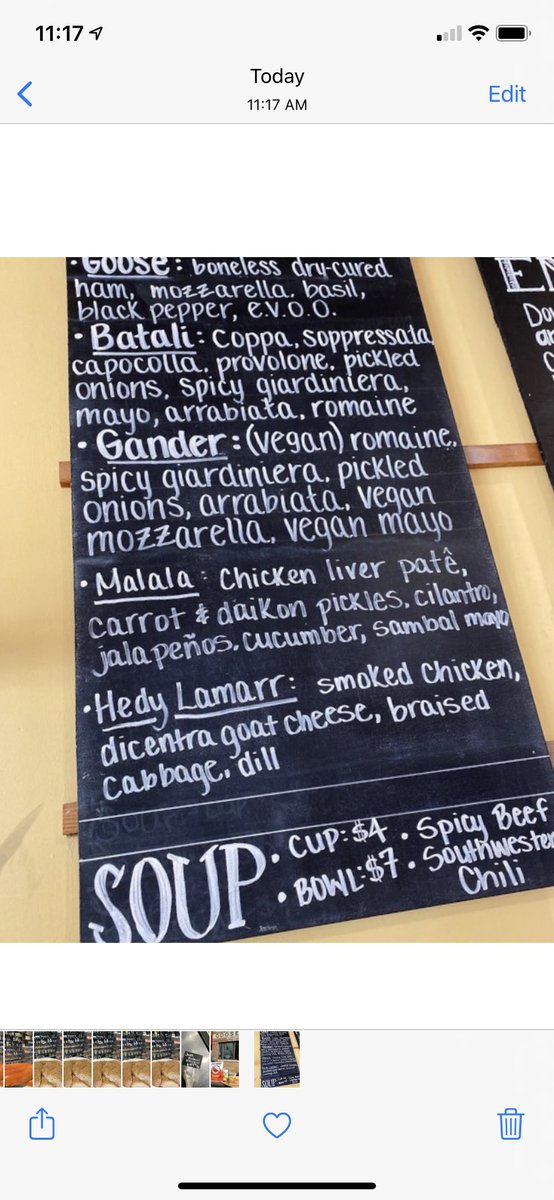 11:17
Today
11:17 AM
Edit
• Goose: boneless dry-cured
ham, mozzarella. basil,
black pepper, e.v.o.o.
• Batali: Coppa, soppressata,
capocolla, provolone, pickled
onions, spicy giardiniera,
mayo, arrabiata, romaine
• Gander: (vegan) romaine,
spicy giardiniera, pickled
onions, arrabiata, vegan
mozzarella, vegan mayo
• Malala: Chicken liver patê,
carrot & daikon pickles, cilantro,
jalapeños, cucumber, sambal mayo
• Hedy Lamarr: smoked chicken,
dicentra goat cheese, braised
cabbage, dill
SOUP • CUP: $4 • Spicy Beef
• BOWL: $7 • Southwester
Chili